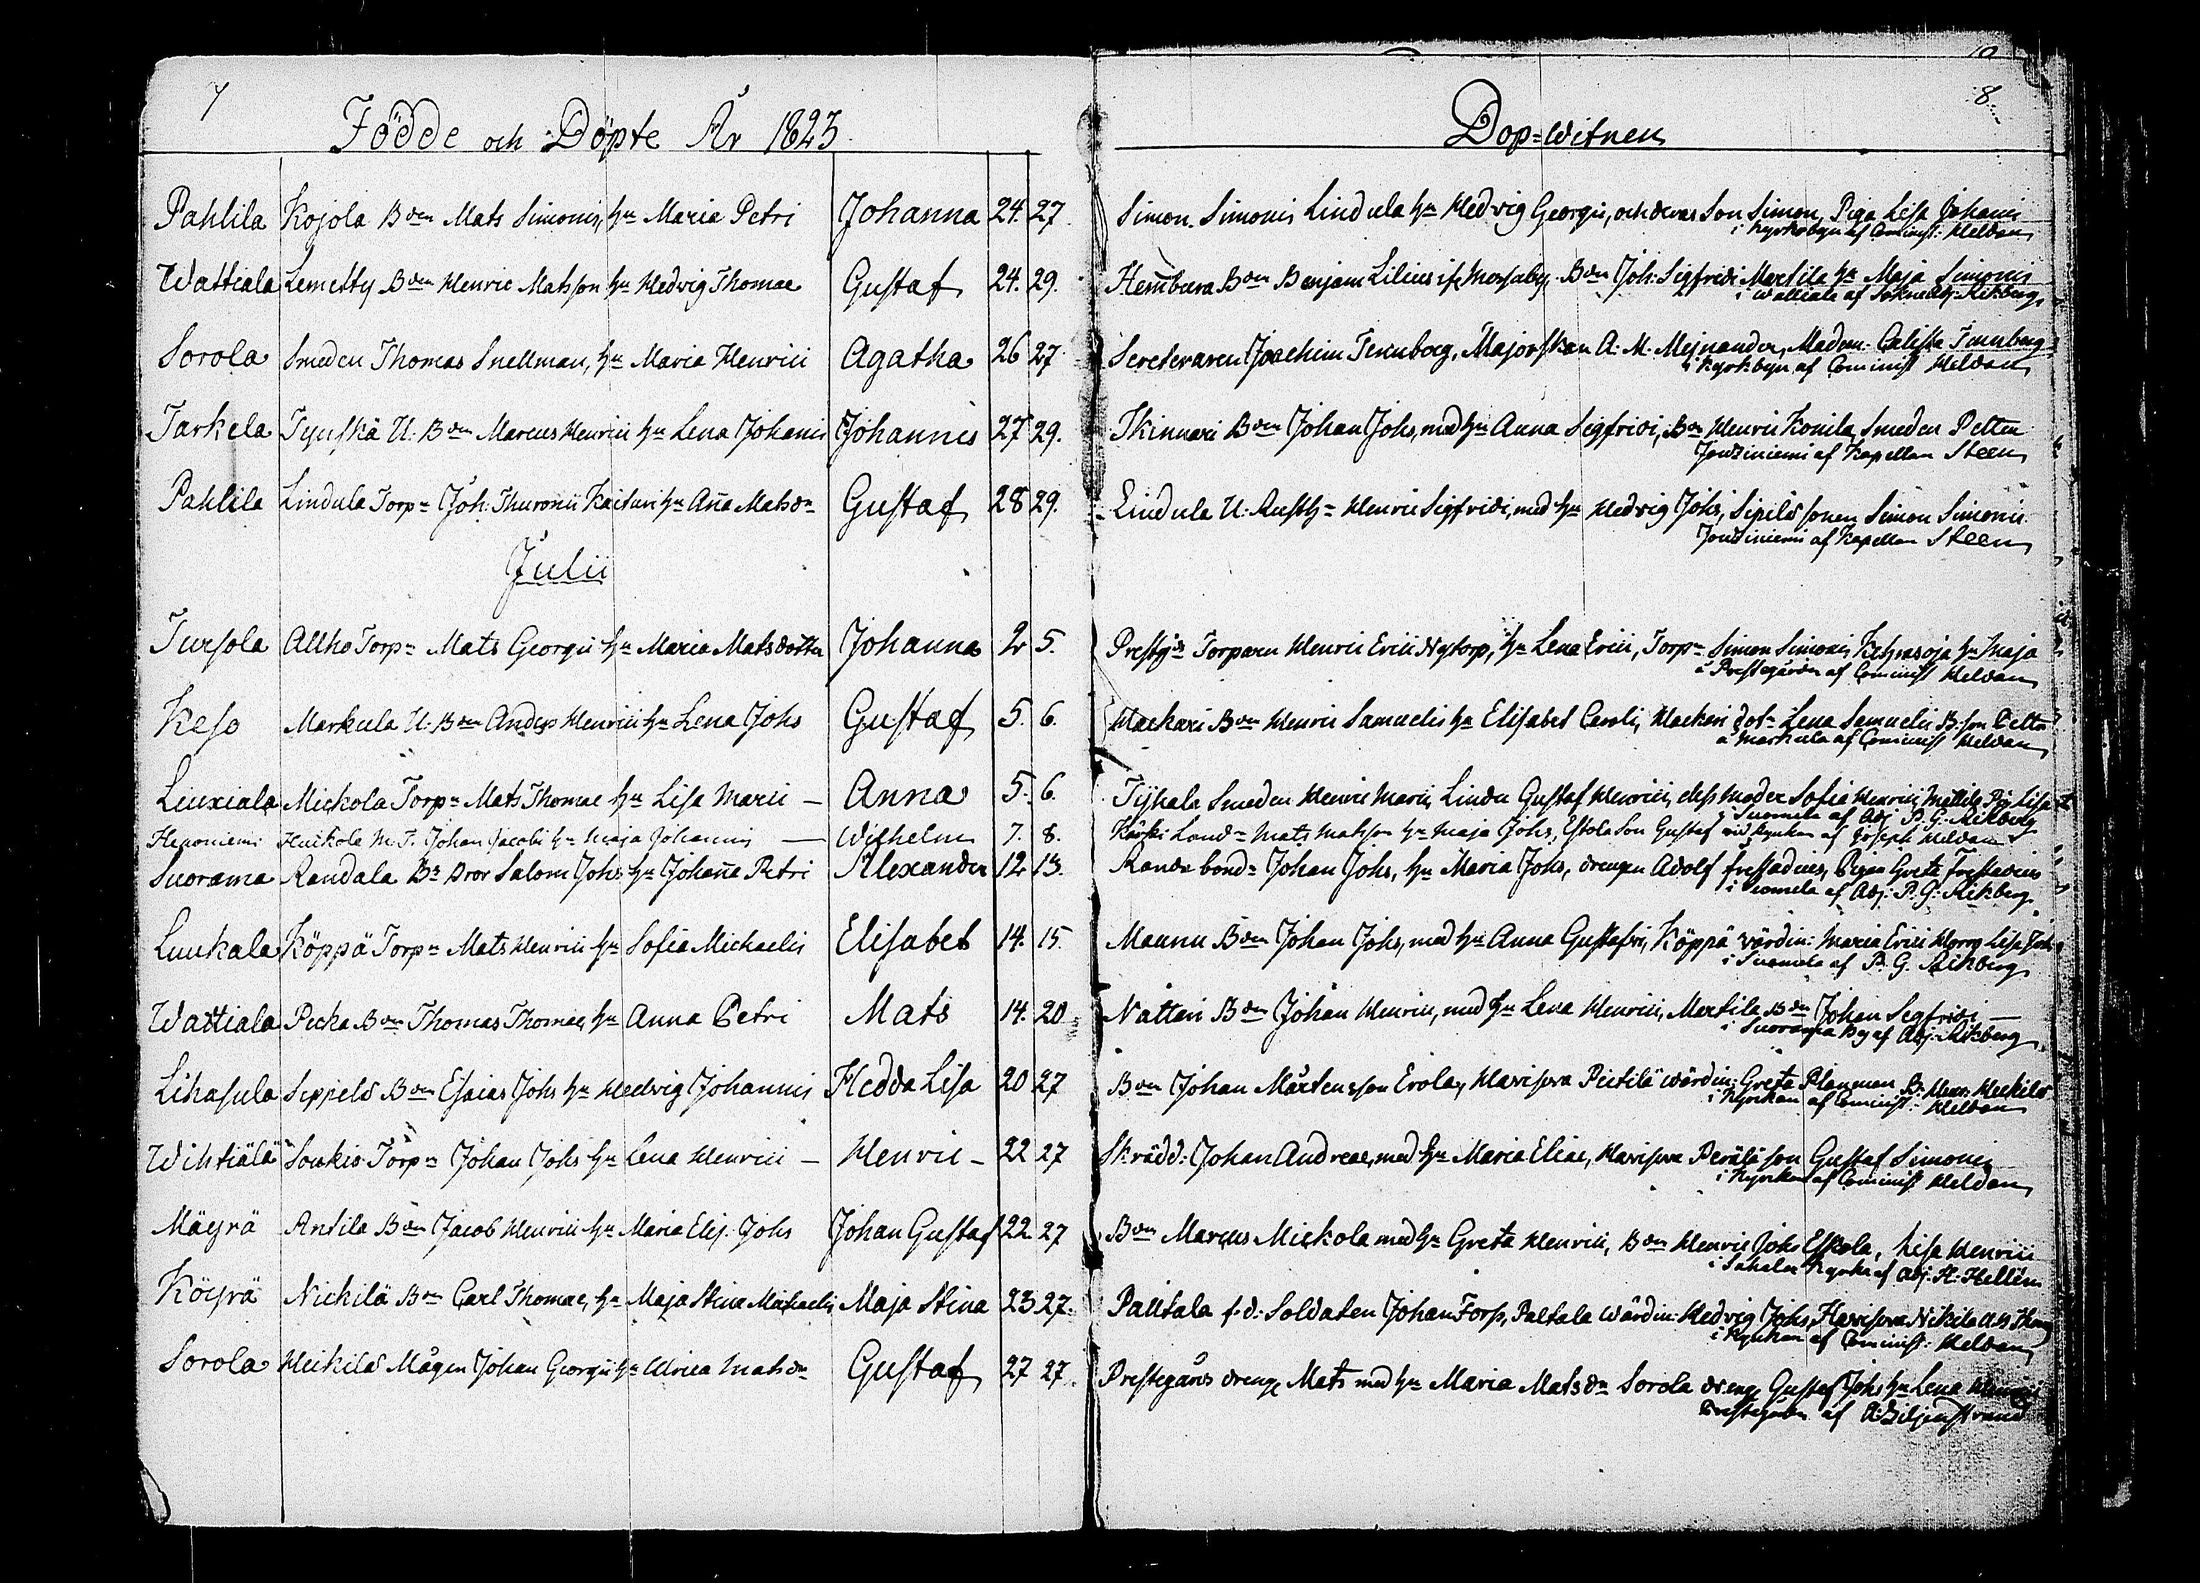 7
Födde och Döpte År 1823
Pahlila Kojola Bden Mats Simonis, hu Maria Petri Johanna 24. 27
Wattiala Lemetty Bden Henric Matsson hu Hedvig Thomae Gustaf 24. 29.
Sorola Smeden Thomas Snellman, hu Maria Henrici Agatha 26 27
Tarkela U. Bden Marcus Henrici hu Lena Johannis Johannes 27 29.
Pahlila Lindula Torp= Joh: hu Aña Matsdr Gustaf 28 29.
Julii
Tursola Allho Torp= Mats Georgii hu Maria Matsdotter Johanna 2 5.
Keso Markula U. Bden Anders Henrici hu Lena Johs Gustaf 5. 6.
Liuxiala Mickola Torp= Mats Thomae hu Lisa Marci — Anna 5. 6.
Heponiemi Huikola Johan Jacobi hu Maja Johannis — Wilhelm 7. 8.
Suorama Randala Salom Johs hu Johaña Petri Alexander 12 13.
Luukala Köppä Torp= Mats Henrici hu Sofia Michaelis Elisabet 14. 15.
Wattiala Pecka Bden Thomas Thomae, hu Anna Petri Mats 14. 20
Lihasula Seppelä Bden Esaias Johs hu Hedvig Johannis Hedda Lisa 20 27
Wihtiälä Soukio Torp= Johan Johs hu Lena Henrici — Henric — 22 27
Mäyrä Antila Bden Jacob Henrici hu Maria Elis. Johs Johan Gustaf 22. 27
Köyrä Nickilä Bden Carl Thomae, hu Maja Stina Michaelis Maja Stina 23. 27.
Sorola Heikilä Mågen Johan Georgii hu Ulrica Matsdr Gustaf 27 27.
8.
Dop=witnen
Simon Simonis Lindula hu Hedvig Georgii, och deras Son Simon, Piga Lisa Johannis
i Kyrkobyn af Cominist: Heldan
Bden Benjam Lilius Bden Joh: Sigfridi Mertila hu Maja Simonis
i Wattiala af Adj: Rikberg
Joachim Ternborg, Majorskan A. M. Mejnander, Madem:
i Kyrkbyn af Cominist Heldan
Bden Johan Johs, med hu Anna Sigfridi, Bden Henric Konila, Smeden Petter
Joutziniemi af Kapellan Steen
Lindula U. Rusth= Henric Sigfridi, med hu Hedvig Johs, Sipilä sonen Simon Simonis
Joutziniemi af Kapellan Steen
Prestgds Torparen Henric Erici Nytorp, hu Lena Erici, Torp= Simon Simonis hu Maja
i Prestegården af Cominist Heldan
Backari Bden Henric Samuelis hu Elisabet Caroli, Lena Samuelis
å Markula af Cominist Heldan
Tijhala Smeden Henric Marci, Linda Gustaf Henrici, dess moder Sofia Henrici, Lisa
i Suomela af Adj P. G. Rikberg
Mats Matsson hu Maja Johs, Estola Son Gustaf vid Kyrkan af Joseph Heldan
Randa bond= Johan Johs, hu Maria Johs, drengen Adolf Frestadius, Pigan Greta Frestadius
i Suomela af Adj: P. G. Rikberg
Maunu Bden Johan Johs, med hu Anna Gustafsdri, Köppä värdin: Maria Erici Lisa Joh
i Suomela af P. G. Rikberg
Nattari Bden Johan Henrici, med hu Lena Henrici, Mertila Bden Johan Segfridi —
i Suorama By af Adj: Rikberg
Bden Johan Mårtensson Erola, Havisova Pietilä wärdin: Greta Planman B: Henr: Heikilä
i Kyrckan af Cominist: Heldan
Skrädd: Johan Andreae, med hu Maria Eliae, Havisova Perälä son Gustaf Simonis
i Kyrckan af Cominist Heldan
Bden Marcus Mickola med hu Greta Henrici, Bden Henric Johs Eskola, Lisa Henrici
i Sahalax Kyrka af Adj. H. Hellén
Palltala f.d. Soldaten Johan Forss, Paltala wärdin: Hedvig Johs, Havisova Nikila
i Kyrkan af Cominist: Heldan
Prestegårds dreng Mats med hu Maria Matsdr Sorola dreng Gustaf Johs hu Lena Henrici
Prestegården af A: Ziljenstrand